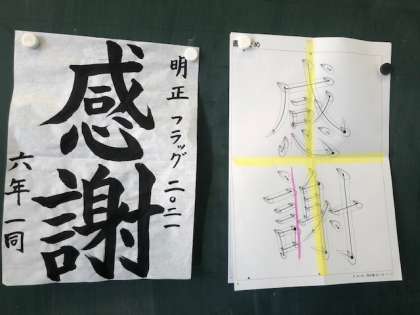 明正 フラッグ 二〇二一
感謝
六年 一同
感謝